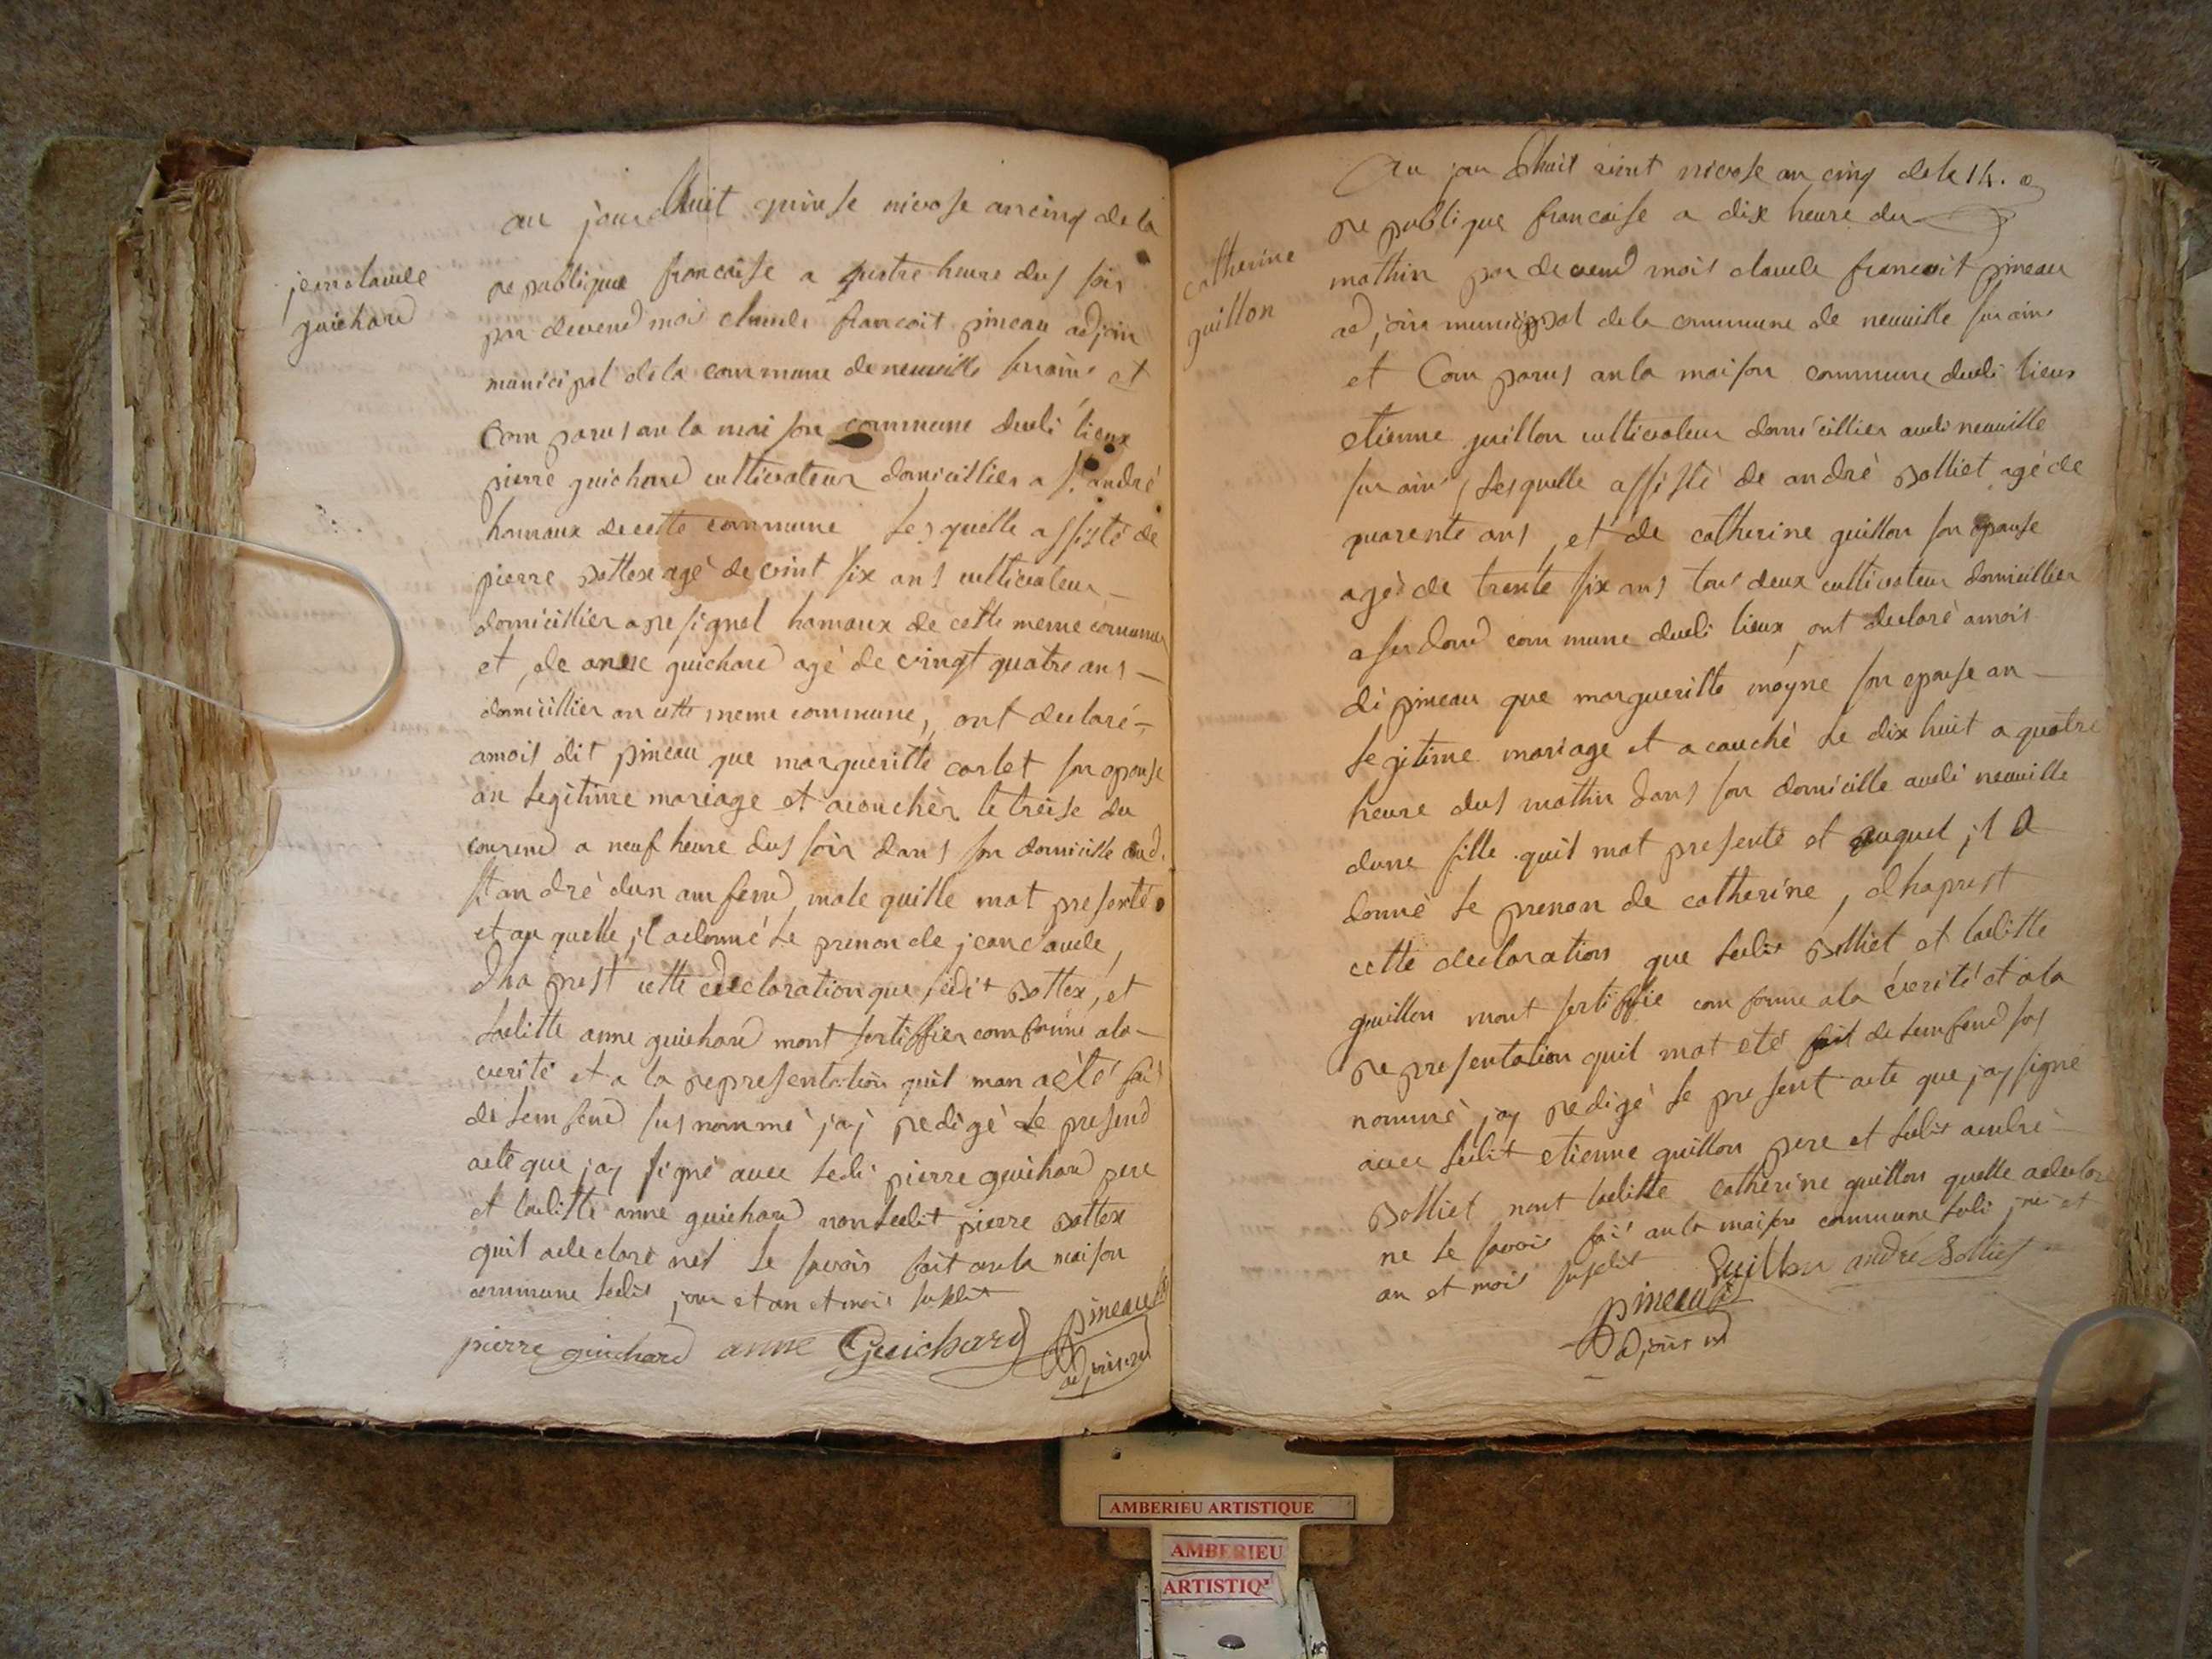 jean claude
guichard
au jourdhuit quinse nivose an cinq de la
republique francaise a quatre heure dus soir
par devend moi claude francoit pineau adjoin
municipal de la commune de neuville sur ains et
Com parus an la mai son commune dudi lieux
pierre guichard cultivateur domicillier a st. andré
hamaux de cette commune lesquelle assisté de
pierre bottex agé de vint six ans cultivateur
domicillier a resignel hamaux de cette meme commune
et de anne guichard agé de vingt quatre ans
domicillier an cette meme commune, ont declaré
amois dit pineau que margueritte carlet son epouse
an legitime mariage et acoucher le treise du
courend a neuf heure dus soir dans son domicille aud.
st andré dun amfend male quille mat presenté
et au quelle jl a donné le prenon de jean claude,
dha prest cette declaration que ledit bottex, et
laditte anne guichard mont sertiffier comforme a la
verité et a la representation quil man a eté fait
de lemfend sus nommé jaj redigé le presend
acte que jay signé avec ledi pierre guichard pere
et laditte anne guichard non ledit pierre bottex
quil a declaré net le savoir fait an la maison
commune ledis jour et an et mois susdit
pierre guichard anne Guichard pineau
adjoin
catherine
guillon
Au jour dhuit vint nivose an cinq de la
republique francaise a dix heure du
mathin par devend mois claude francoit pineau
adjoin municippal de la commune de neuville sur ains
et Com parus an la maison commune dudi lieux
etienne guillon cultivateur domicillier audi neuville
sur ains, lesquelle assisté de andré bolliet agé de
quarente ans, et de catherine guillon son epouse
agée de trente six ans tous deux cultivateur domicillier
a ser dond commune dudi lieux, ont declaré amois
di pineau que margueritte moyne son epouse an
legitime mariage et a couché le dix huit a quatre
heure dus mathin dans son domicille audi neuville
dune fille quil mat presenté et auquel jl a
donné le prenon de catherine, dhaprest
cette declaration que ledit bolliet et laditte
guillon mont sertiffié com forme a la verité et a la
representation quil mat eté fait de lemfend sus
nommé, jay redigé le present acte que jay signé
avec ledit etienne guillon pere et ledit andré
bolliet nont laditte catherine guillon quelle a declaré
ne le savoir fai an la maison commune ledi jour et
an et mois susdit Guillon andré bolliet
pineau
adjoin
AMBERIEU ARTISTIQUE
AMBERIEU
ARTISTIQ